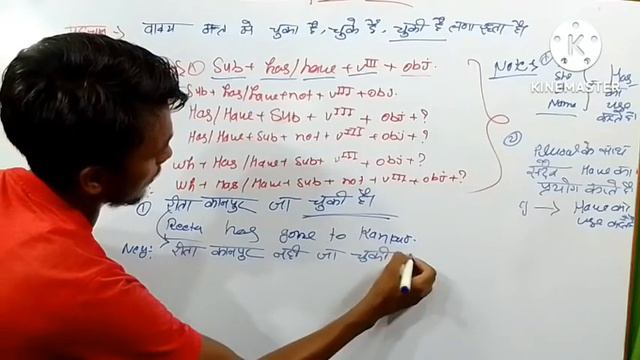 पहचान → वाक्य के अन्त में चुका है, चुके है, चुकी है लगा रहता है।
① Sub + has/have + VIII + obj.
Sub + has/have + not + VIII + obj.
Has/Have + Sub + VIII + obj + ?
Has/Have + Sub + not + VIII + obj + ?
Wh + Has/Have + Sub + VIII + obj + ?
Wh + Has/Have + Sub + not + VIII + obj + ?
① रीता कानपुर जा चुकी है।
Reeta has gone to Kanpur.
Neg: रीता कानपुर नही जा चुकी
Notes ①
She
Name
Has
का
use
करते है।
② Plural के साथ
सदैव Have का
प्रयोग करते है
I → Have का
use करते है
KINEMASTER